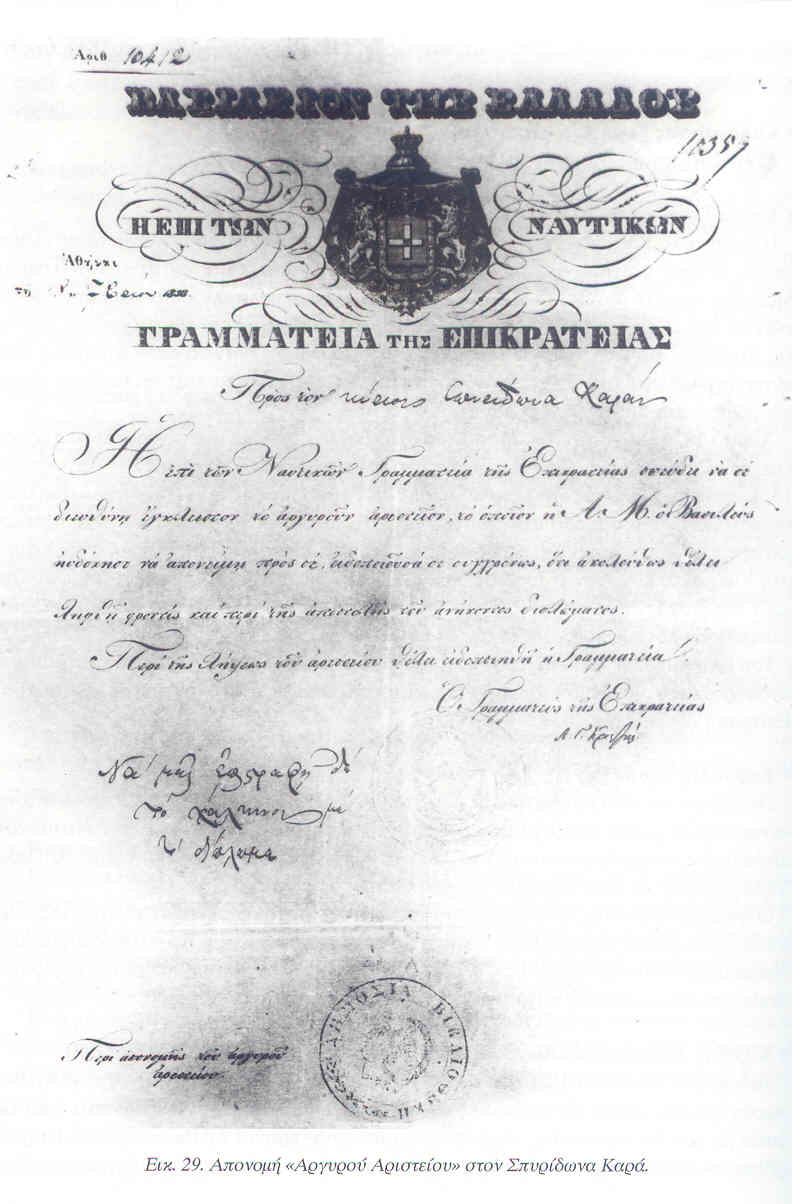 Ἀριθ. 10412
ΒΑΣΙΛΕΙΟΝ ΤΗΣ ΕΛΛΑΔΟΣ
10357
Η ΕΠΙ ΤΩΝ ΝΑΥΤΙΚΩΝ
Ἀθῆναι
ΓΡΑΜΜΑΤΕΙΑ ΤΗΣ ΕΠΙΚΡΑΤΕΙΑΣ
Πρὸς τὸν κύριον Σπυρίδωνα Καρὰν
Ἡ ἐπὶ τῶν Ναυτικῶν Γραμματεία τῆς Ἐπικρατείας σπεύδει νὰ σὲ
διευθύνῃ ἔγκλειστον τὸ ἀργυροῦν ἀριστεῖον, τὸ ὁποῖον ἡ Α. Μ. ὁ Βασιλεὺς
ηὐδόκησε νὰ ἀπονείμῃ πρὸς σέ, εἰδοποιοῦσά σε συγχρόνως, ὅτι ἀκολούθως θέλει
ληφθῆ φροντὶς καὶ περὶ τῆς ἀποστολῆς τοῦ ἀνήκοντος διπλώματος.
Περὶ τῆς λήψεως τοῦ ἀριστείου θέλει εἰδοποιηθῆ ἡ Γραμματεία.
Ὁ Γραμματεὺς τῆς Ἐπικρατείας
Α. Γ. Κριεζῆς
Νὰ
τὸ
δίπλωμα
ΔΗΜΟΣΙΑ ΒΙΒΛΙΟΘΗΚΗ
Περὶ ἀπονομῆς τοῦ ἀργυροῦ
ἀριστείου.
Εικ. 29. Απονομή «Αργυρού Αριστείου» στον Σπυρίδωνα Καρά.